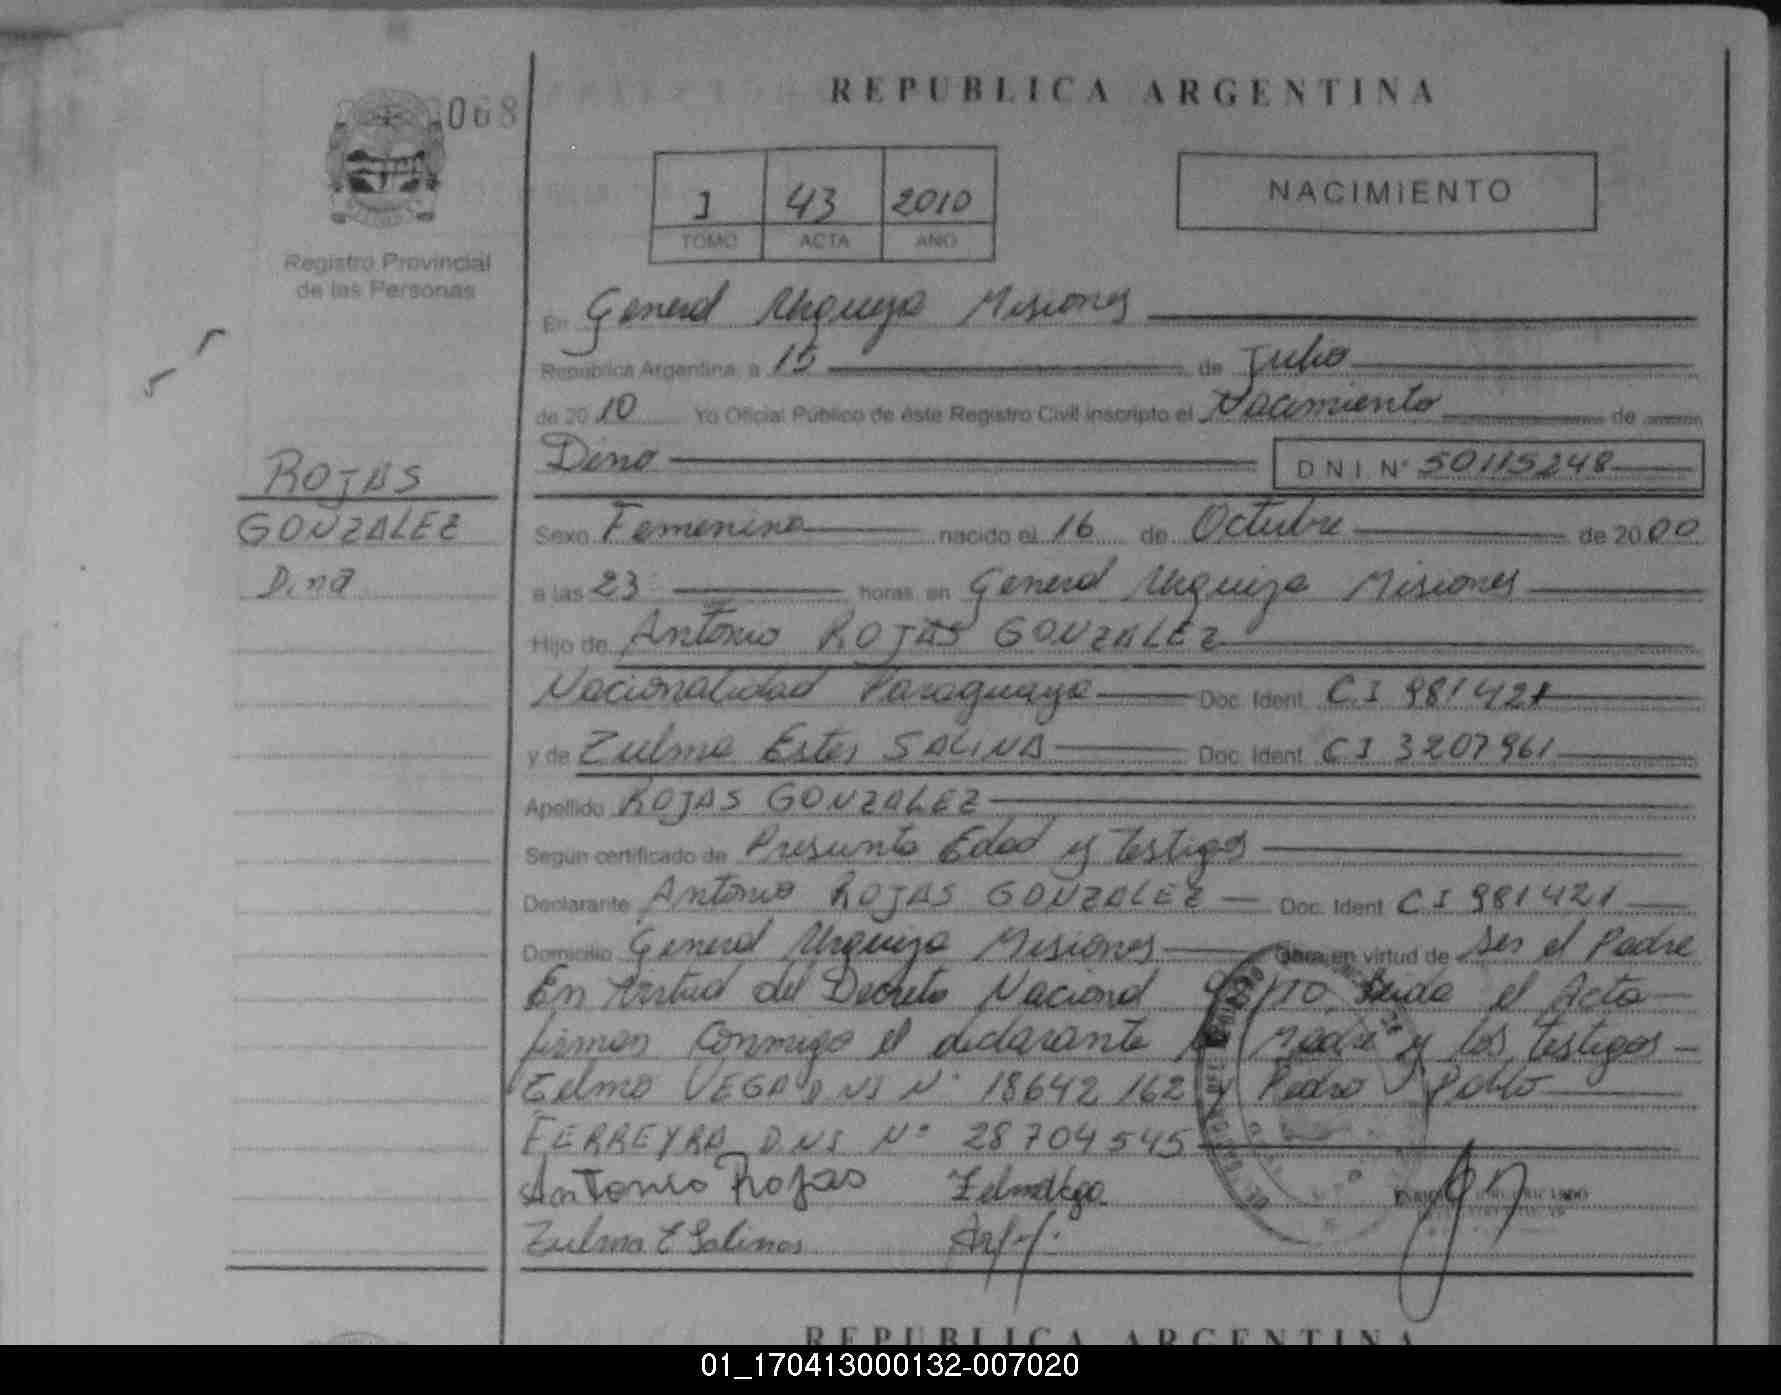 068
REPUBLICA ARGENTINA
1 43 2010
TOMO ACTA AÑO
NACIMIENTO
Registro Provincial
de las Personas
En General Urquiza Misiones
República Argentina, a 15 de Julio
de 2010 Yo Oficial Público de éste Registro Civil inscripto el Nacimiento de
Dina D N I N° 50115248
ROJAS
GONZALEZ
Dina
Sexo Femenino nacido el 16 de Octubre de 2000
a las 23 horas en General Urquiza Misiones
Hijo de Antonio ROJAS GONZALEZ
Nacionalidad Paraguaya Doc. Ident. C.I 981421
y de Zulma Ester SALINA Doc. Ident. C I 3207961
Apellido ROJAS GONZALEZ
Según certificado de Presunta Edad y testigos
Declarante Antonio ROJAS GONZALEZ Doc. Ident. C I 981421
Domicilio General Urquiza Misiones Obra en virtud de Ser el Padre
En Virtud del Decreto Nacional el Acta
firman conmigo el declarante la Madre y los testigos
Zelma VEGA DNI N° 18642162 y Pedro Pablo
FERREYRA DNI N° 28704545
Antonio Rojas Zelma Vega
Zulma E Salinas
REPUBLICA ARGENTINA
01_170413000132-007020